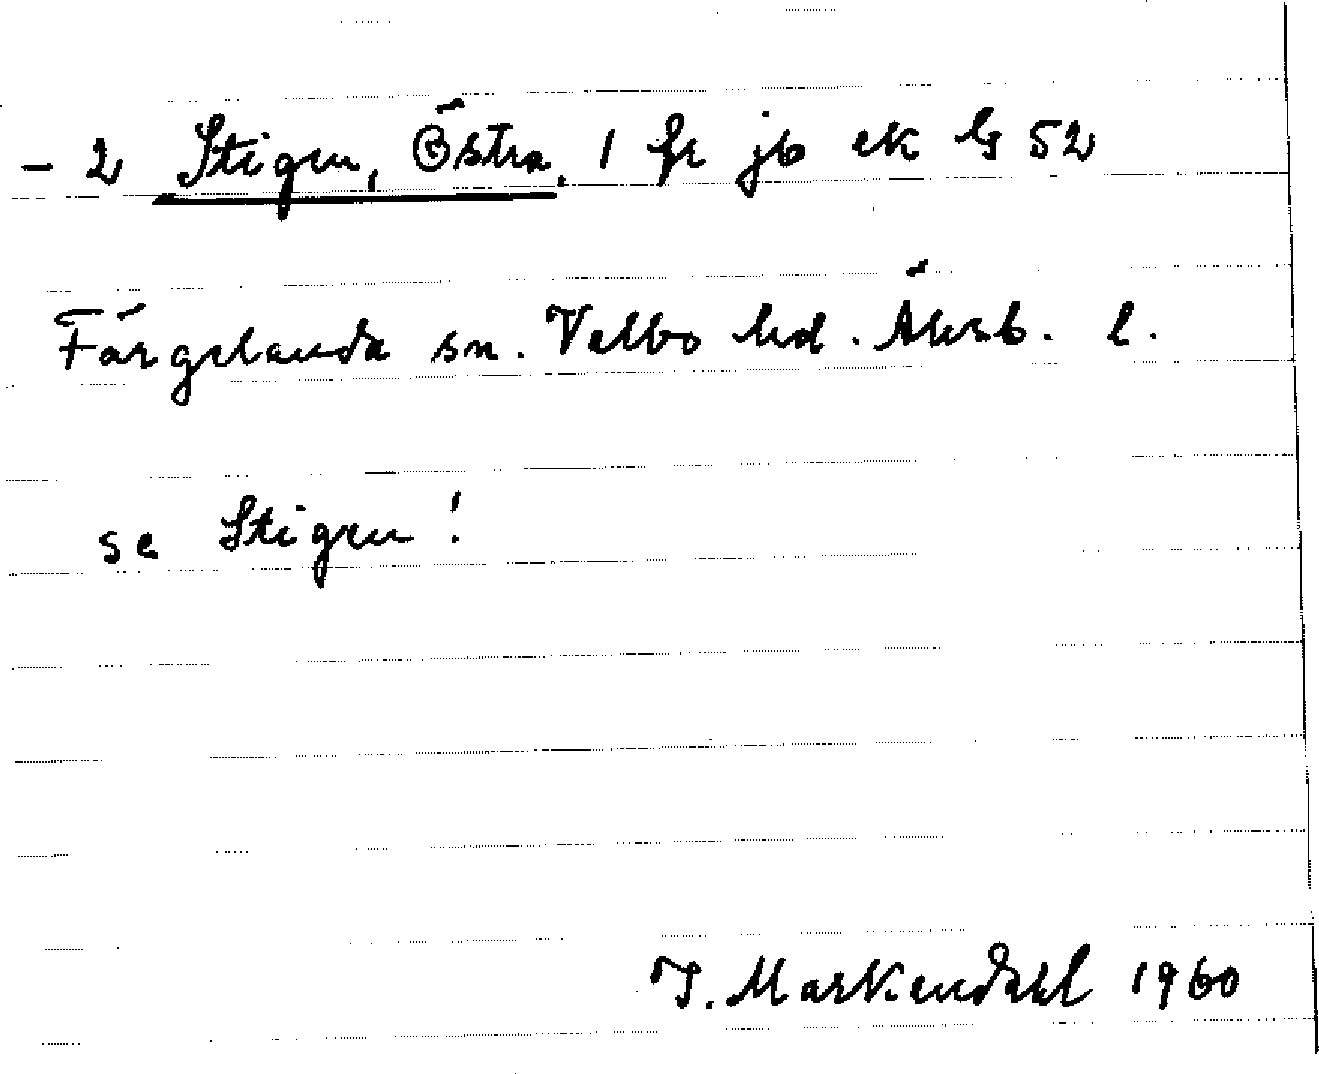 - 2 Stigen, Östra, 1 fr jb ek G 52
Färgelanda sn. Valbo hd. Älvsb. l.
se Stigen!
I. Markendahl 1960